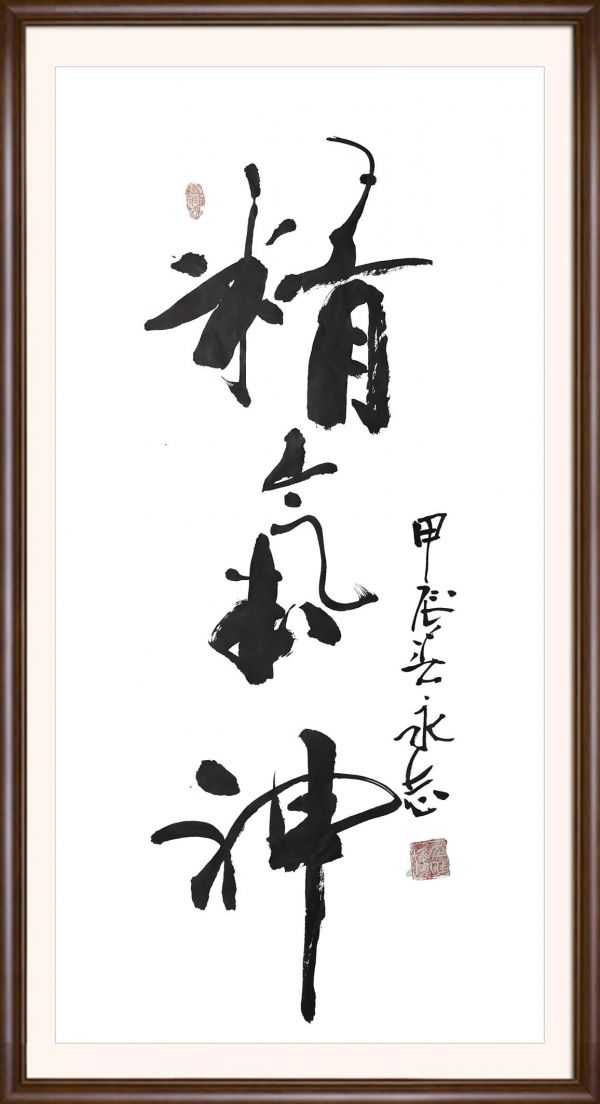 精氣神
甲辰姜永志